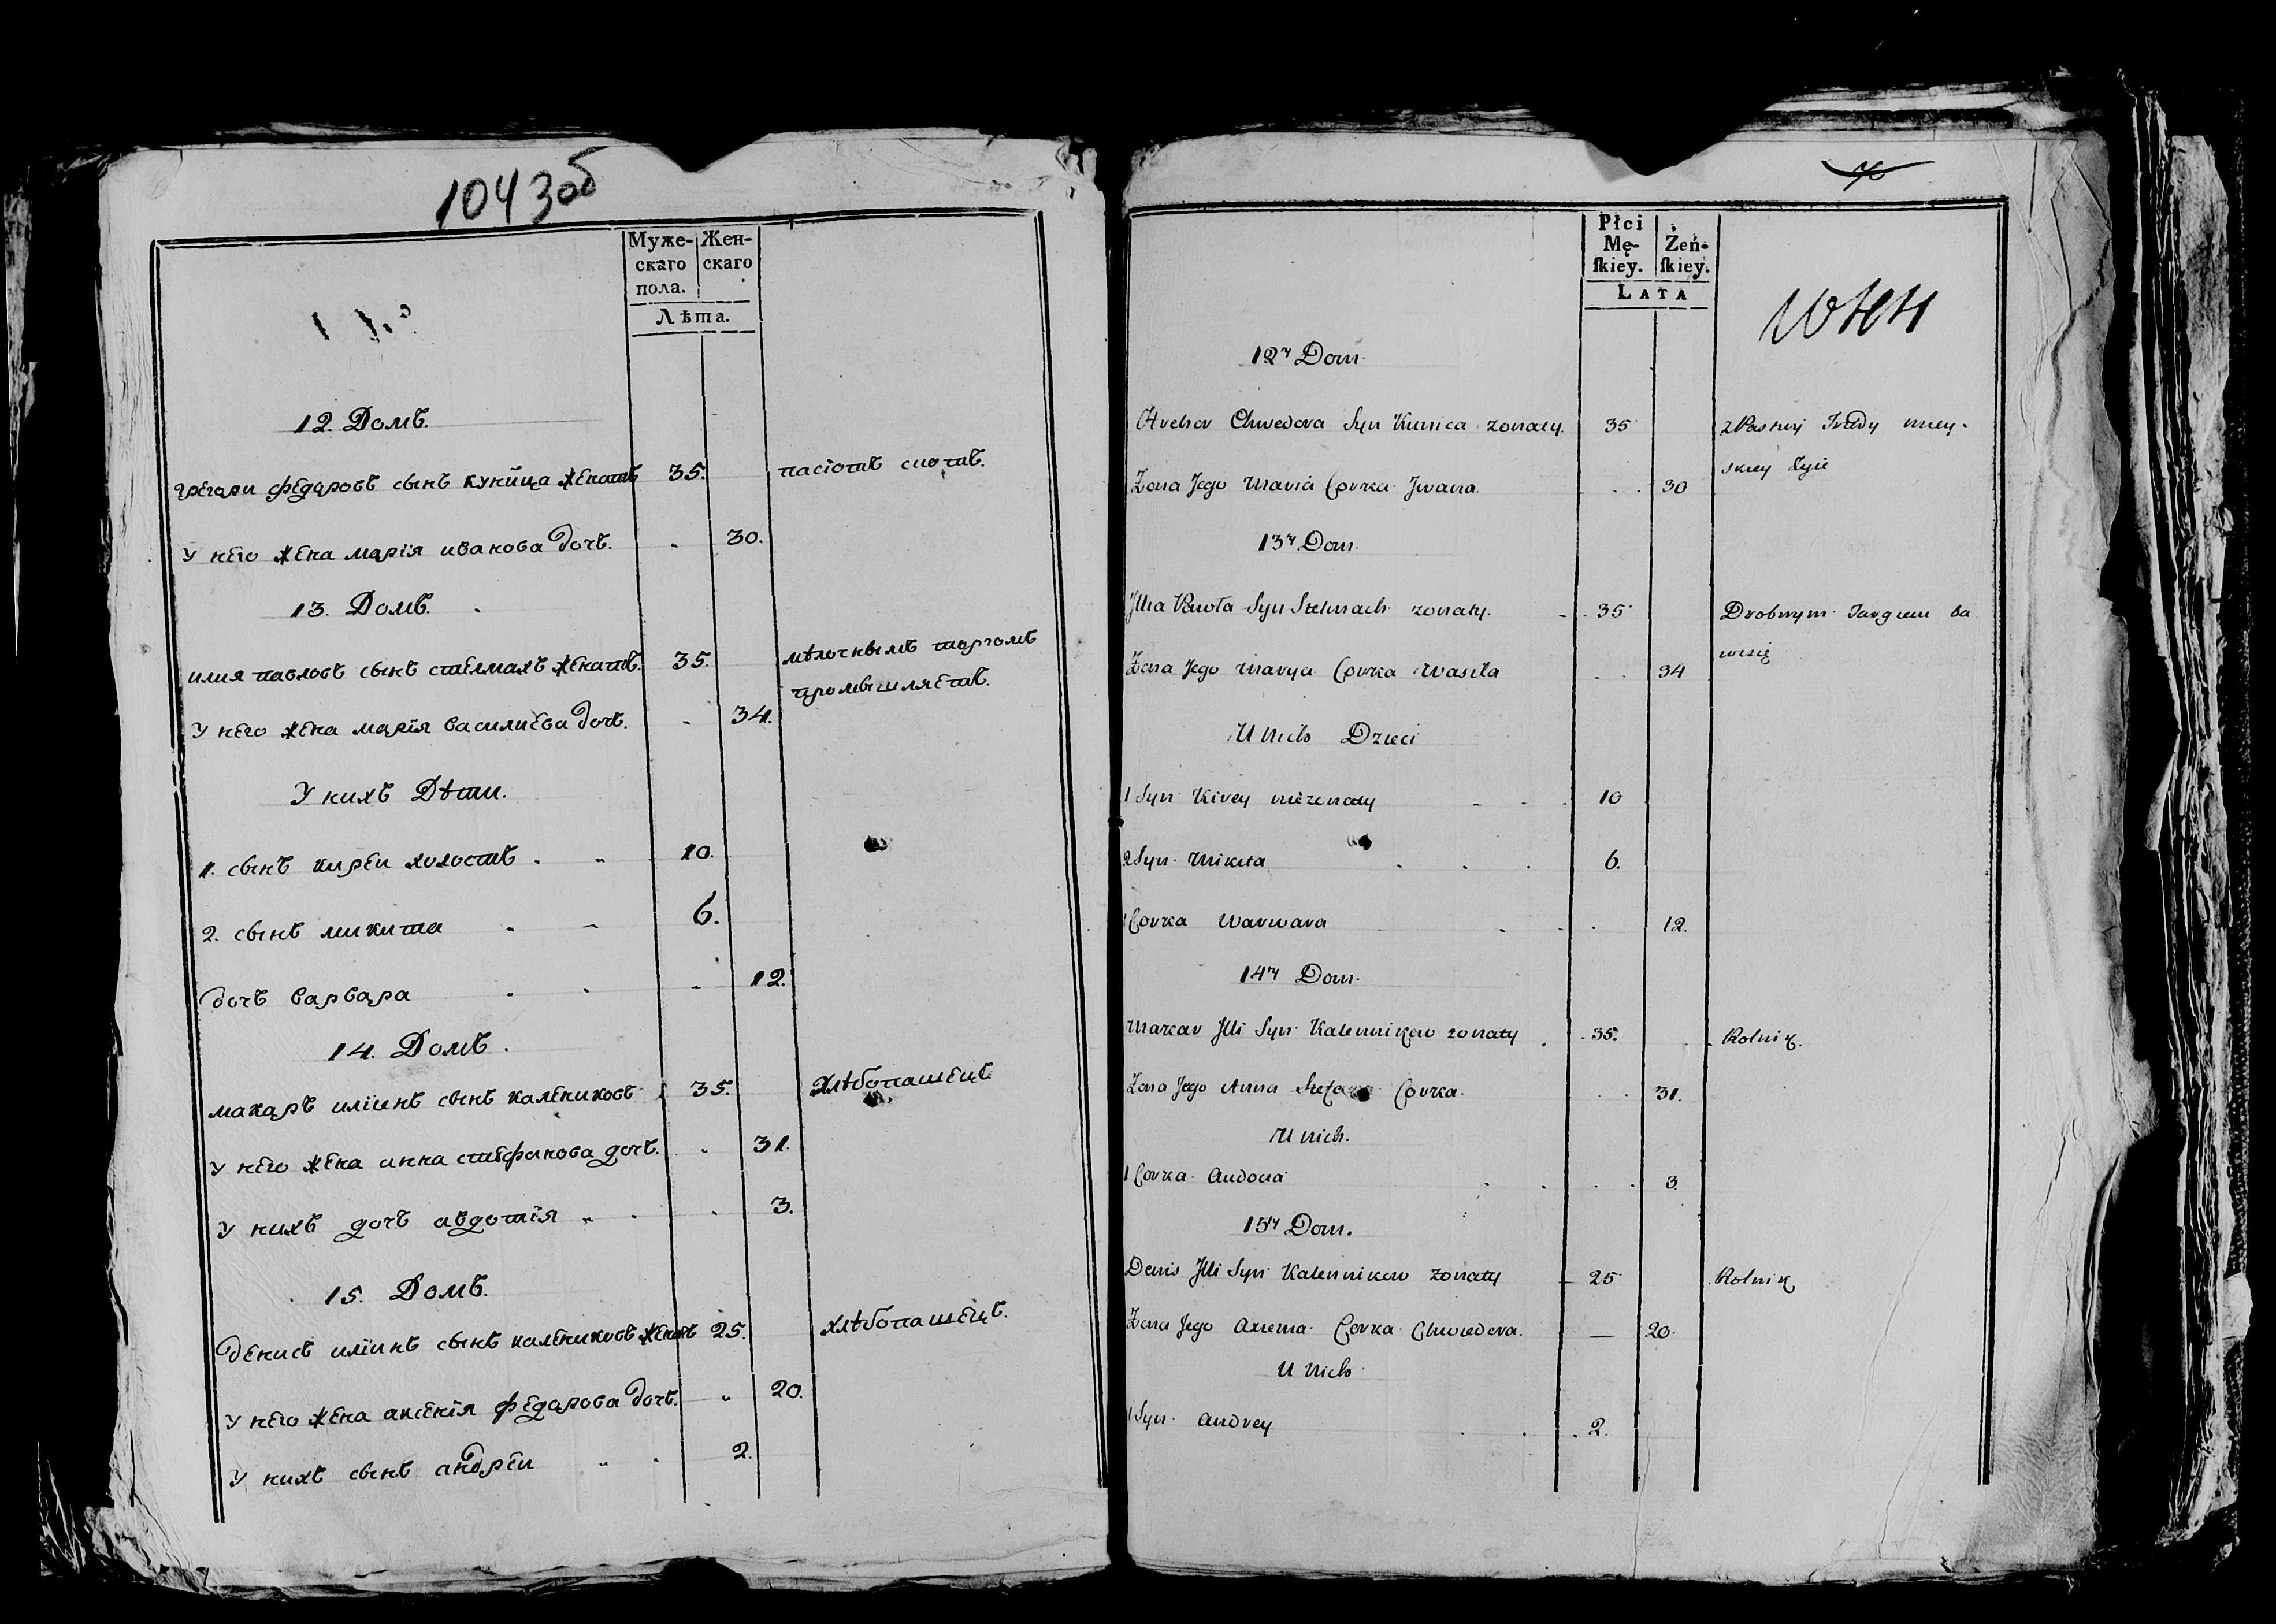 1043об
Муже-
скаго
пола.
Жен-
скаго
Лѣта.
12. Домъ.
грегари федаровъ сынъ куница женатъ 35. пасіотъ скотъ.
У него жена марія иванова дочъ. 30.
13. Домъ.
илия павловъ сынъ стелмахъ женатъ. 35. мѣлочнымъ торгомъ
промышляетъ.
У него жена марія василиева дочъ. 34.
У нихъ Дѣти.
1. сынъ кирей холостъ 10.
2. сынъ микита 6.
дочъ варвара 12.
14. Домъ.
макаръ иліинъ сынъ калениковъ 35. хлѣбопашецъ
У него жена анна стефанова дочъ. 31.
У нихъ дочъ авдотія 3.
15. Домъ.
денисъ иліинъ сынъ калениковъ женатъ 25. хлѣбопашецъ.
У него жена аксенія федарова дочъ. 20.
У нихъ сынъ андреи 2.
Płci
Mę-
ſkiey.
Żeń-
ſkiey.
LATA
12ty Dom
Hrehor Chwedora Syn Kunica zonaty. 35
Zona Jego Maria Corka Jwana. 30
13ty Dom
Jllia Pawła Syn Stelmach zonaty. 35 Drobnym Targiem ba
wi się
Zona Jego Marya Corka Wasila 34
U Nich Dzieci
1 Syn Kirey niezonaty 10
2 Syn Mikita 6.
1 Corka Warwara 12.
14ty Dom.
Makar Jlli Syn Kalennikow zonaty 35. Rolnik.
Zona Jego Anna Corka. 31.
U nich.
1 Corka Audocia 3.
15ty Dom.
Denis Jlli Syn Kalennikow zonaty 25 Rolnik
Zona Jego Axenia Corka Chwedora. 20.
U Nich
1 Syn Andrey 2.